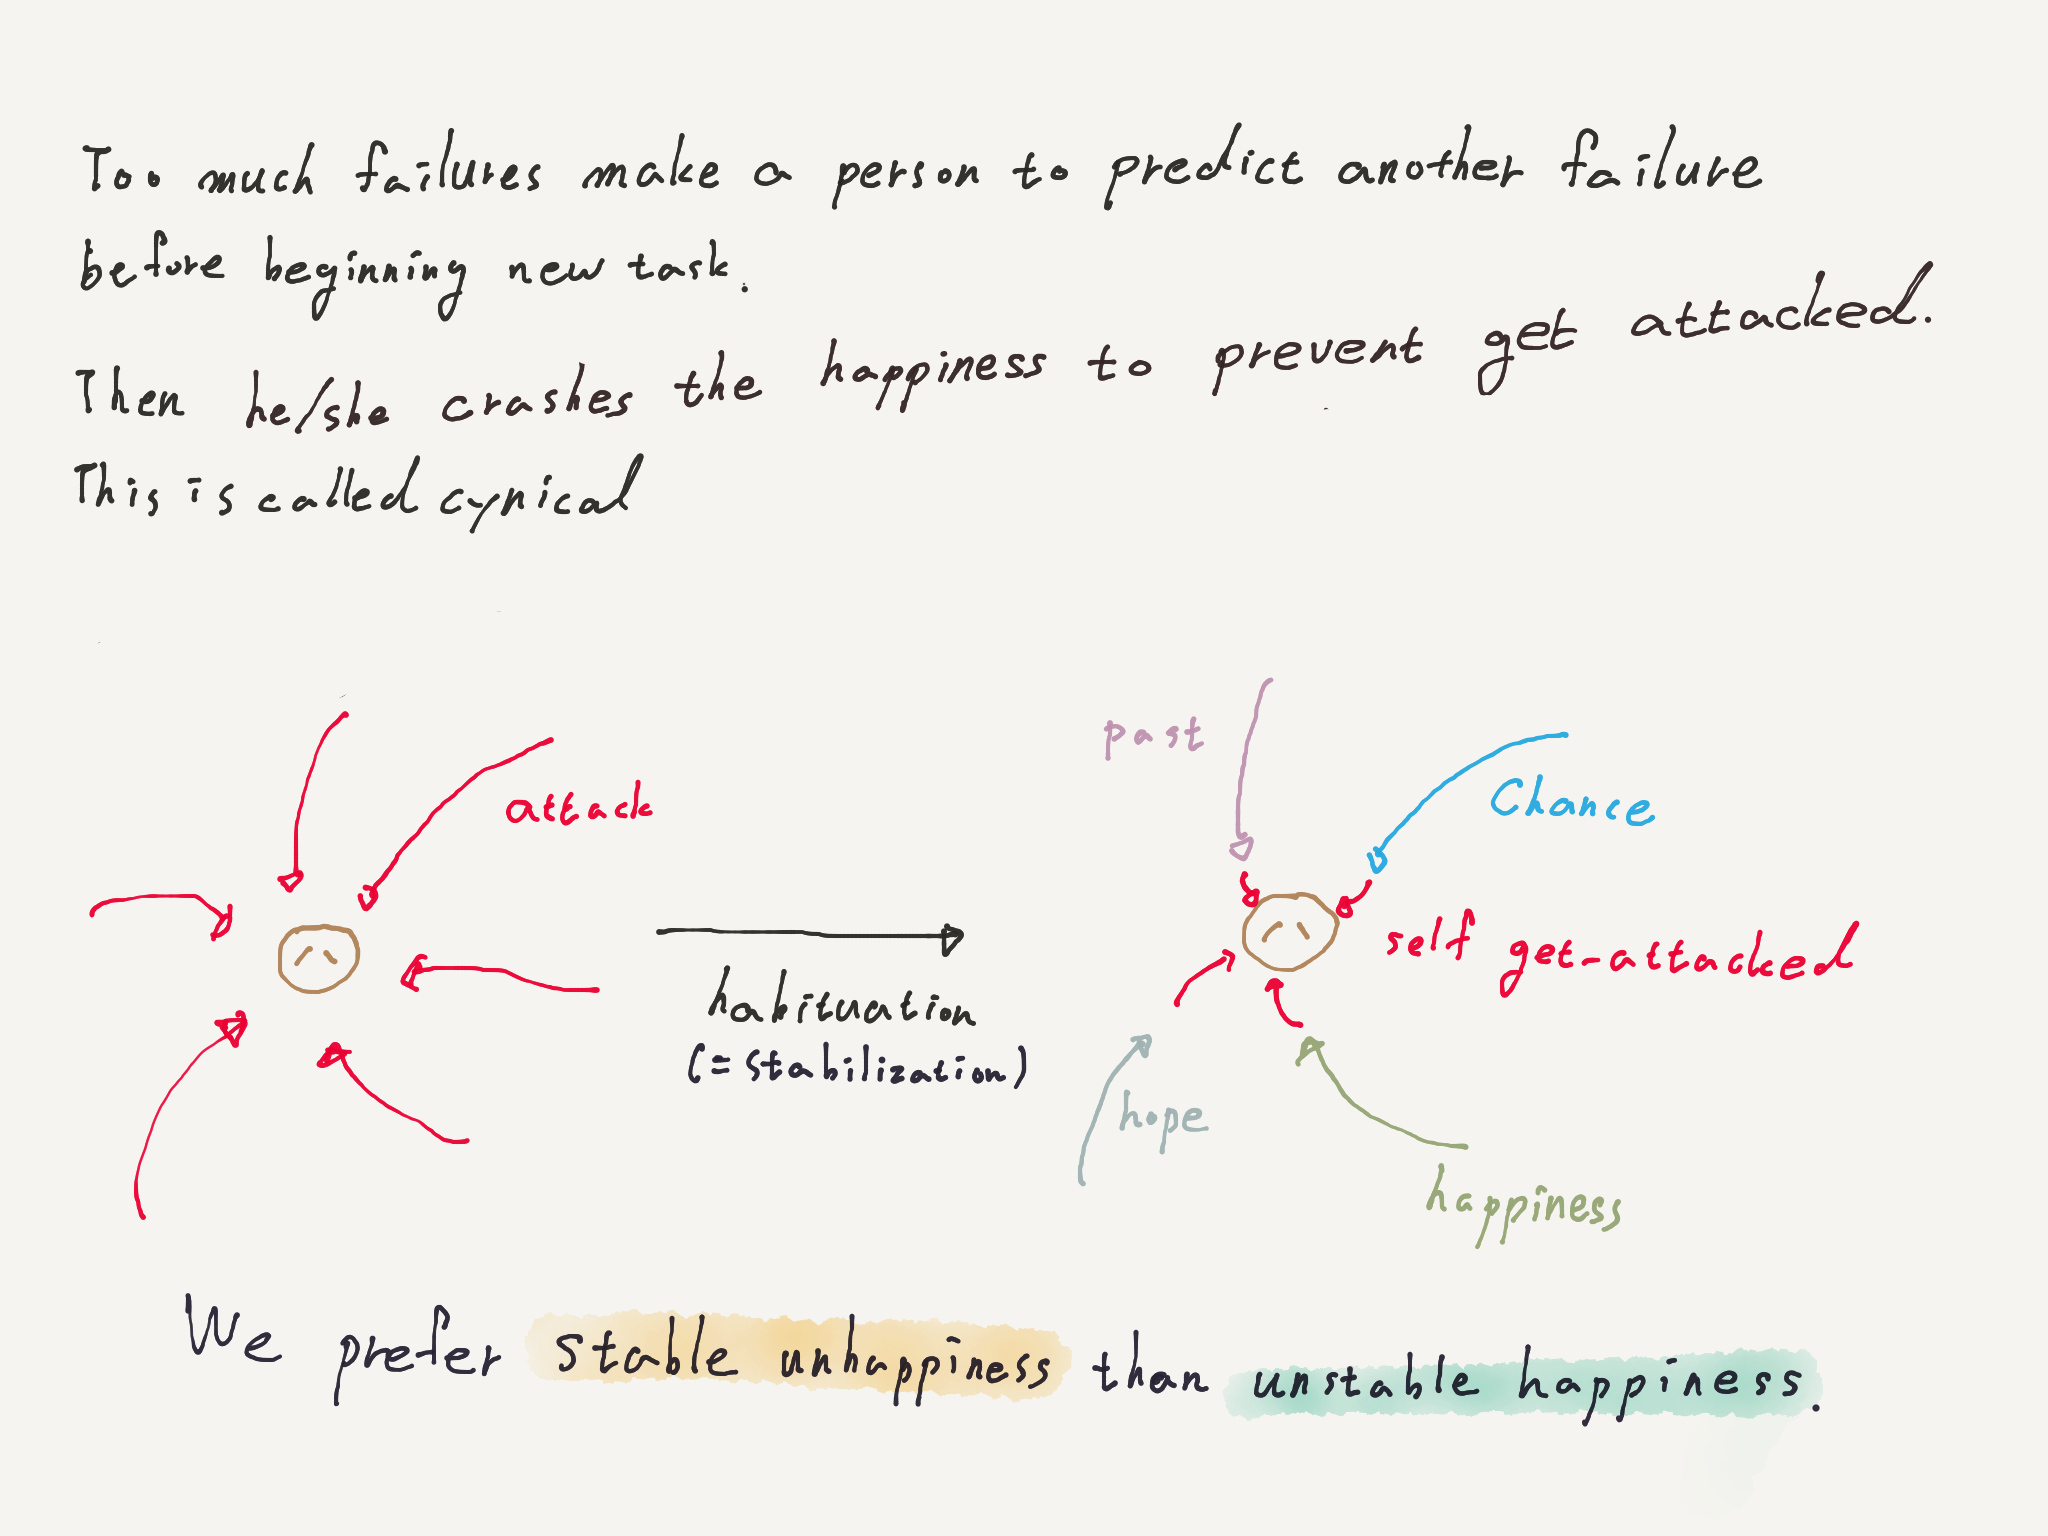 Too much failures make a person to predict another failure
before beginning new task.
Then he/she crashes the happiness to prevent get attacked.
This is called cynical
attack
habituation
(= stabilization)
past
Chance
self get-attacked
hope
happiness
We prefer stable unhappiness than unstable happiness.